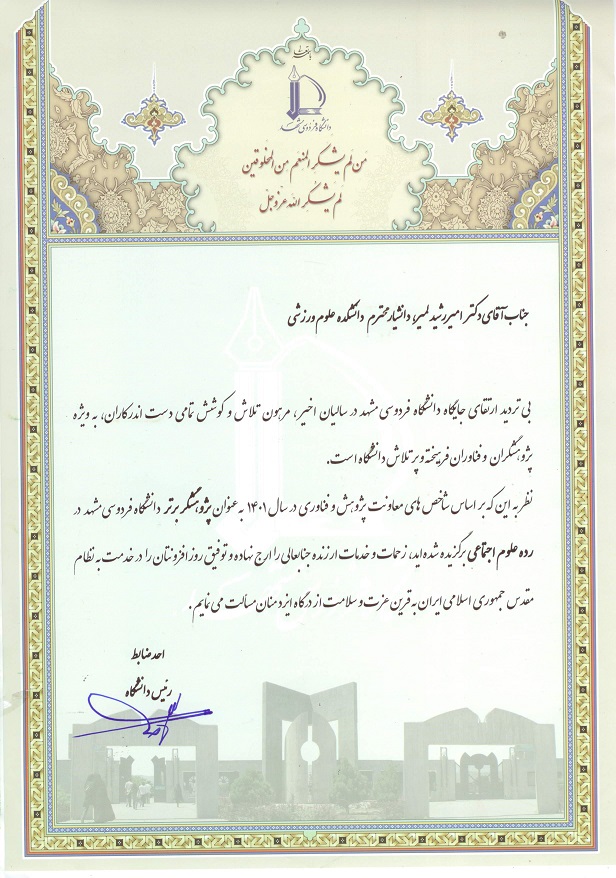 باسمه تعالی
دانشگاه فردوسی مشهد
مَن لَم یشکر المنعم من المخلوقین
لَم یشکر الله عزوجل
جناب آقای دکتر امیر رشید لمیر، دانشیار محترم دانشکده علوم ورزشی
بی تردید ارتقای جایگاه دانشگاه فردوسی مشهد در سالیان اخیر، مرهون تلاش و کوشش تمامی دست اندرکاران، به ویژه
پژوهشگران و فناوران فرهیخته و پر تلاش دانشگاه است.
نظر به این که بر اساس شاخص های معاونت پژوهش و فناوری در سال ۱۴۰۱ به عنوان پژوهشگر برتر دانشگاه فردوسی مشهد در
رده علوم اجتماعی برگزیده شده اید، زحمات و خدمات ارزنده جنابعالی را ارج نهاده و توفیق روز افزونتان را در خدمت به نظام
مقدس جمهوری اسلامی ایران به قرین عزت و سلامت از درگاه ایزد منان مسألت می نمایم.
احد ضابط
رئیس دانشگاه